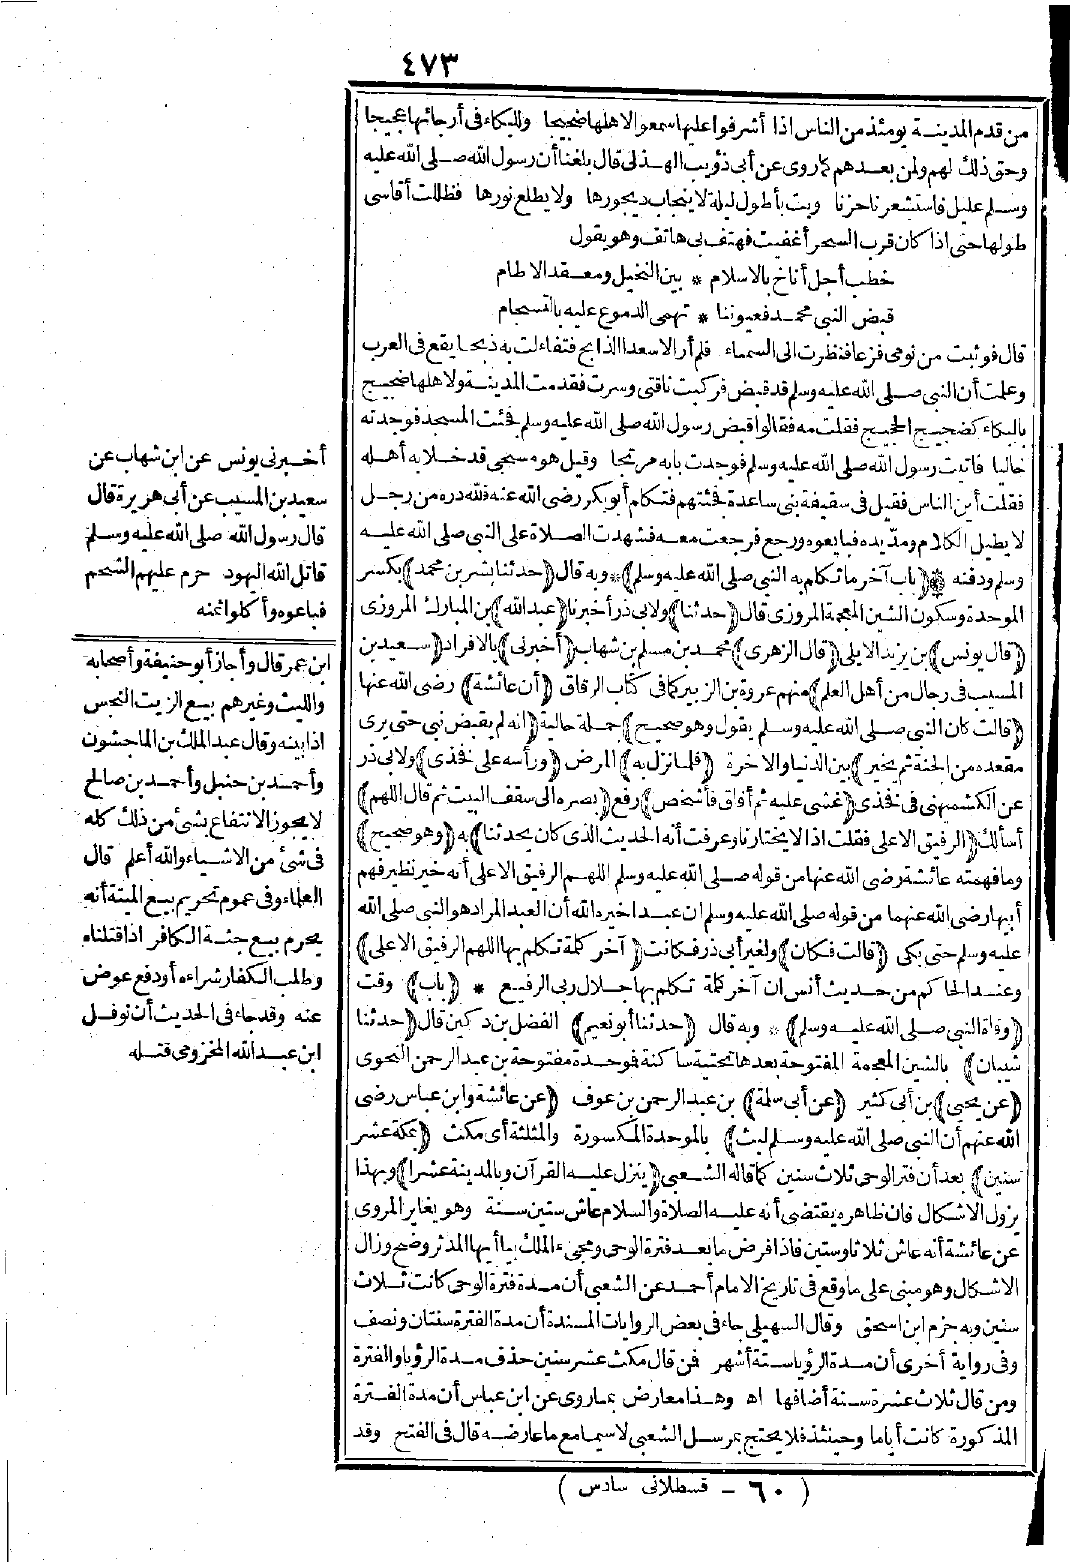 ٤٧٣
من قدم المدينة يومئذ من الناس اذا أشرفوا عليها سمعوا لاهلها ضجيجا وللبكاء فى أرجائها عجيجا
وحق ذلك لهم ولمن بعدهم كما روى عن أبى ذؤيب الهذلى قال بلغنا أن رسول الله صلى الله عليه
وسلم عليل فاستشعرنا حزنا وبت بأطول ليلة لا ينجاب ديجورها ولا يطلع نورها فظللت أقاسى
طولها حتى اذا كان قرب السحر أغفيت فهتف بى هاتف وهو يقول
خطب أجل أناخ بالاسلام * بين النخيل ومعقد الاطام
قبض النبى محمد فعيوننا * تهمى الدموع عليه بالتسجام
قال فوثبت من نومى فزعا فنظرت الى السماء فلم أر الا سعدا الذابح فتفاءلت به ذبحا يقع فى العرب
وعلمت أن النبى صلى الله عليه وسلم قد قبض فركبت ناقتى وسرت فقدمت المدينة ولاهلها ضجيج
بالبكاء كضجيج الحجيج فقلت مه فقالوا قبض رسول الله صلى الله عليه وسلم فجئت المسجد فوجدته
خاليا فاتيت رسول الله صلى الله عليه وسلم فوجدت بابه مرتجا وقيل هو مسجى قد خلا به أهله
فقلت أين الناس فقيل فى سقيفة بنى ساعدة فجئتهم فتكلم أبو بكر رضى الله عنه فلله دره من رجل
لا يطيل الكلام ومد يده فبايعوه ورجع فرجعت معه فشهدت الصلاة على النبى صلى الله عليه
وسلم ودفنه * (باب آخر ما تكلم به النبى صلى الله عليه وسلم) * وبه قال (حدثنا بشر بن محمد) بكسر
الموحدة وسكون الشين المعجمة المروزى قال (حدثنا) ولابى ذر أخبرنا (عبد الله) بن المبارك المروزى
(قال يونس) بن يزيد الايلى (قال الزهرى) محمد بن مسلم بن شهاب (أخبرنى) بالافراد (سعيد بن
المسيب فى رجال من أهل العلم) منهم عروة بن الزبير كما فى كتاب الرقاق (أن عائشة) رضى الله عنها
(قالت كان النبى صلى الله عليه وسلم يقول وهو صحيح) جملة حالية (انه لم يقبض نبى حتى يرى
مقعده من الجنة ثم يخير) بين الدنيا والاخرة (فلما نزل به) المرض (ورأسه على فخذى) ولابى ذر
عن الكشميهنى فى فخذى (غشى عليه ثم أفاق فأشخص) رفع (بصره الى سقف البيت ثم قال اللهم)
أسألك (الرفيق الاعلى فقلت اذا لا يختارنا وعرفت أنه الحديث الذى كان يحدثنا) به (وهو صحيح)
وما فهمته عائشة رضى الله عنها من قوله صلى الله عليه وسلم اللهم الرفيق الاعلى أنه خير نظير فهم
أبيها رضى الله عنهما من قوله صلى الله عليه وسلم ان عبدا خيره الله أن العبد المراد هو النبى صلى الله
عليه وسلم حتى بكى (قالت فكان) ولغير أبى ذر فكانت (آخر كلمة تكلم بها اللهم الرفيق الاعلى)
وعند الحاكم من حديث أنس ان آخر كلمة تكلم بها جلال ربى الرفيع * (باب) وقت
(وفاة النبى صلى الله عليه وسلم) * وبه قال (حدثنا أبو نعيم) الفضل بن دكين قال (حدثنا
شيبان) بالشين المعجمة المفتوحة بعدها تحتية ساكنة فوحدة مفتوحة بن عبد الرحمن النحوى
(عن يحيى) بن أبى كثير (عن أبى سلمة) بن عبد الرحمن بن عوف (عن عائشة وابن عباس رضى
الله عنهم أن النبى صلى الله عليه وسلم لبث) بالموحدة المكسورة والمثلثة أى مكث (بمكة عشر
سنين) بعد أن فتر الوحى ثلاث سنين كما قاله الشعبى (ينزل عليه القرآن وبالمدينة عشرا) وبهذا
يزول الاشكال فان ظاهره يقتضى أنه عليه الصلاة والسلام عاش ستين سنة وهو يغاير المروى
عن عائشة أنه عاش ثلاثا وستين فاذا فرض ما بعد فترة الوحى ومجىء الملك بيا أيها المدثر وضح وزال
الاشكال وهو مبنى على ما وقع فى تاريخ الامام أحمد عن الشعبى أن مدة فترة الوحى كانت ثلاث
سنين وبه جزم ابن اسحق وقال السهيلى جاء فى بعض الروايات المسندة أن مدة الفترة سنتان ونصف
وفى رواية أخرى أن مدة الرؤيا ستة أشهر فمن قال مكث عشر سنين حذف مدة الرؤيا والفترة
ومن قال ثلاث عشرة سنة أضافها اه وهذا معارض بما روى عن ابن عباس أن مدة الفترة
المذكورة كانت أياما وحينئذ فلا يحتج بمرسل الشعبى لا سيما مع ما عارضه قال فى الفتح وقد
(٦٠ - قسطلانى سادس)
أخبرنى يونس عن ابن شهاب عن
سعيد بن المسيب عن أبى هريرة قال
قال رسول الله صلى الله عليه وسلم
قاتل الله اليهود حرم عليهم الشحم
فباعوه وأكلوا ثمنه
ابن عمر قال وأجاز أبو حنيفة وأصحابه
والليث وغيرهم بيع الزيت النجس
اذا بينه وقال عبد الملك بن الماجشون
وأحمد بن حنبل وأحمد بن صالح
لا يجوز الانتفاع بشئ من ذلك كله
فى شئ من الاشياء والله أعلم قال
العلماء وفى عموم تحريم بيع الميتة أنه
يحرم بيع جثة الكافر اذا قتلناه
وطلب الكفار شراءه أو دفع عوض
عنه وقد جاء فى الحديث أن نوفل
ابن عبد الله المخزومى قتله